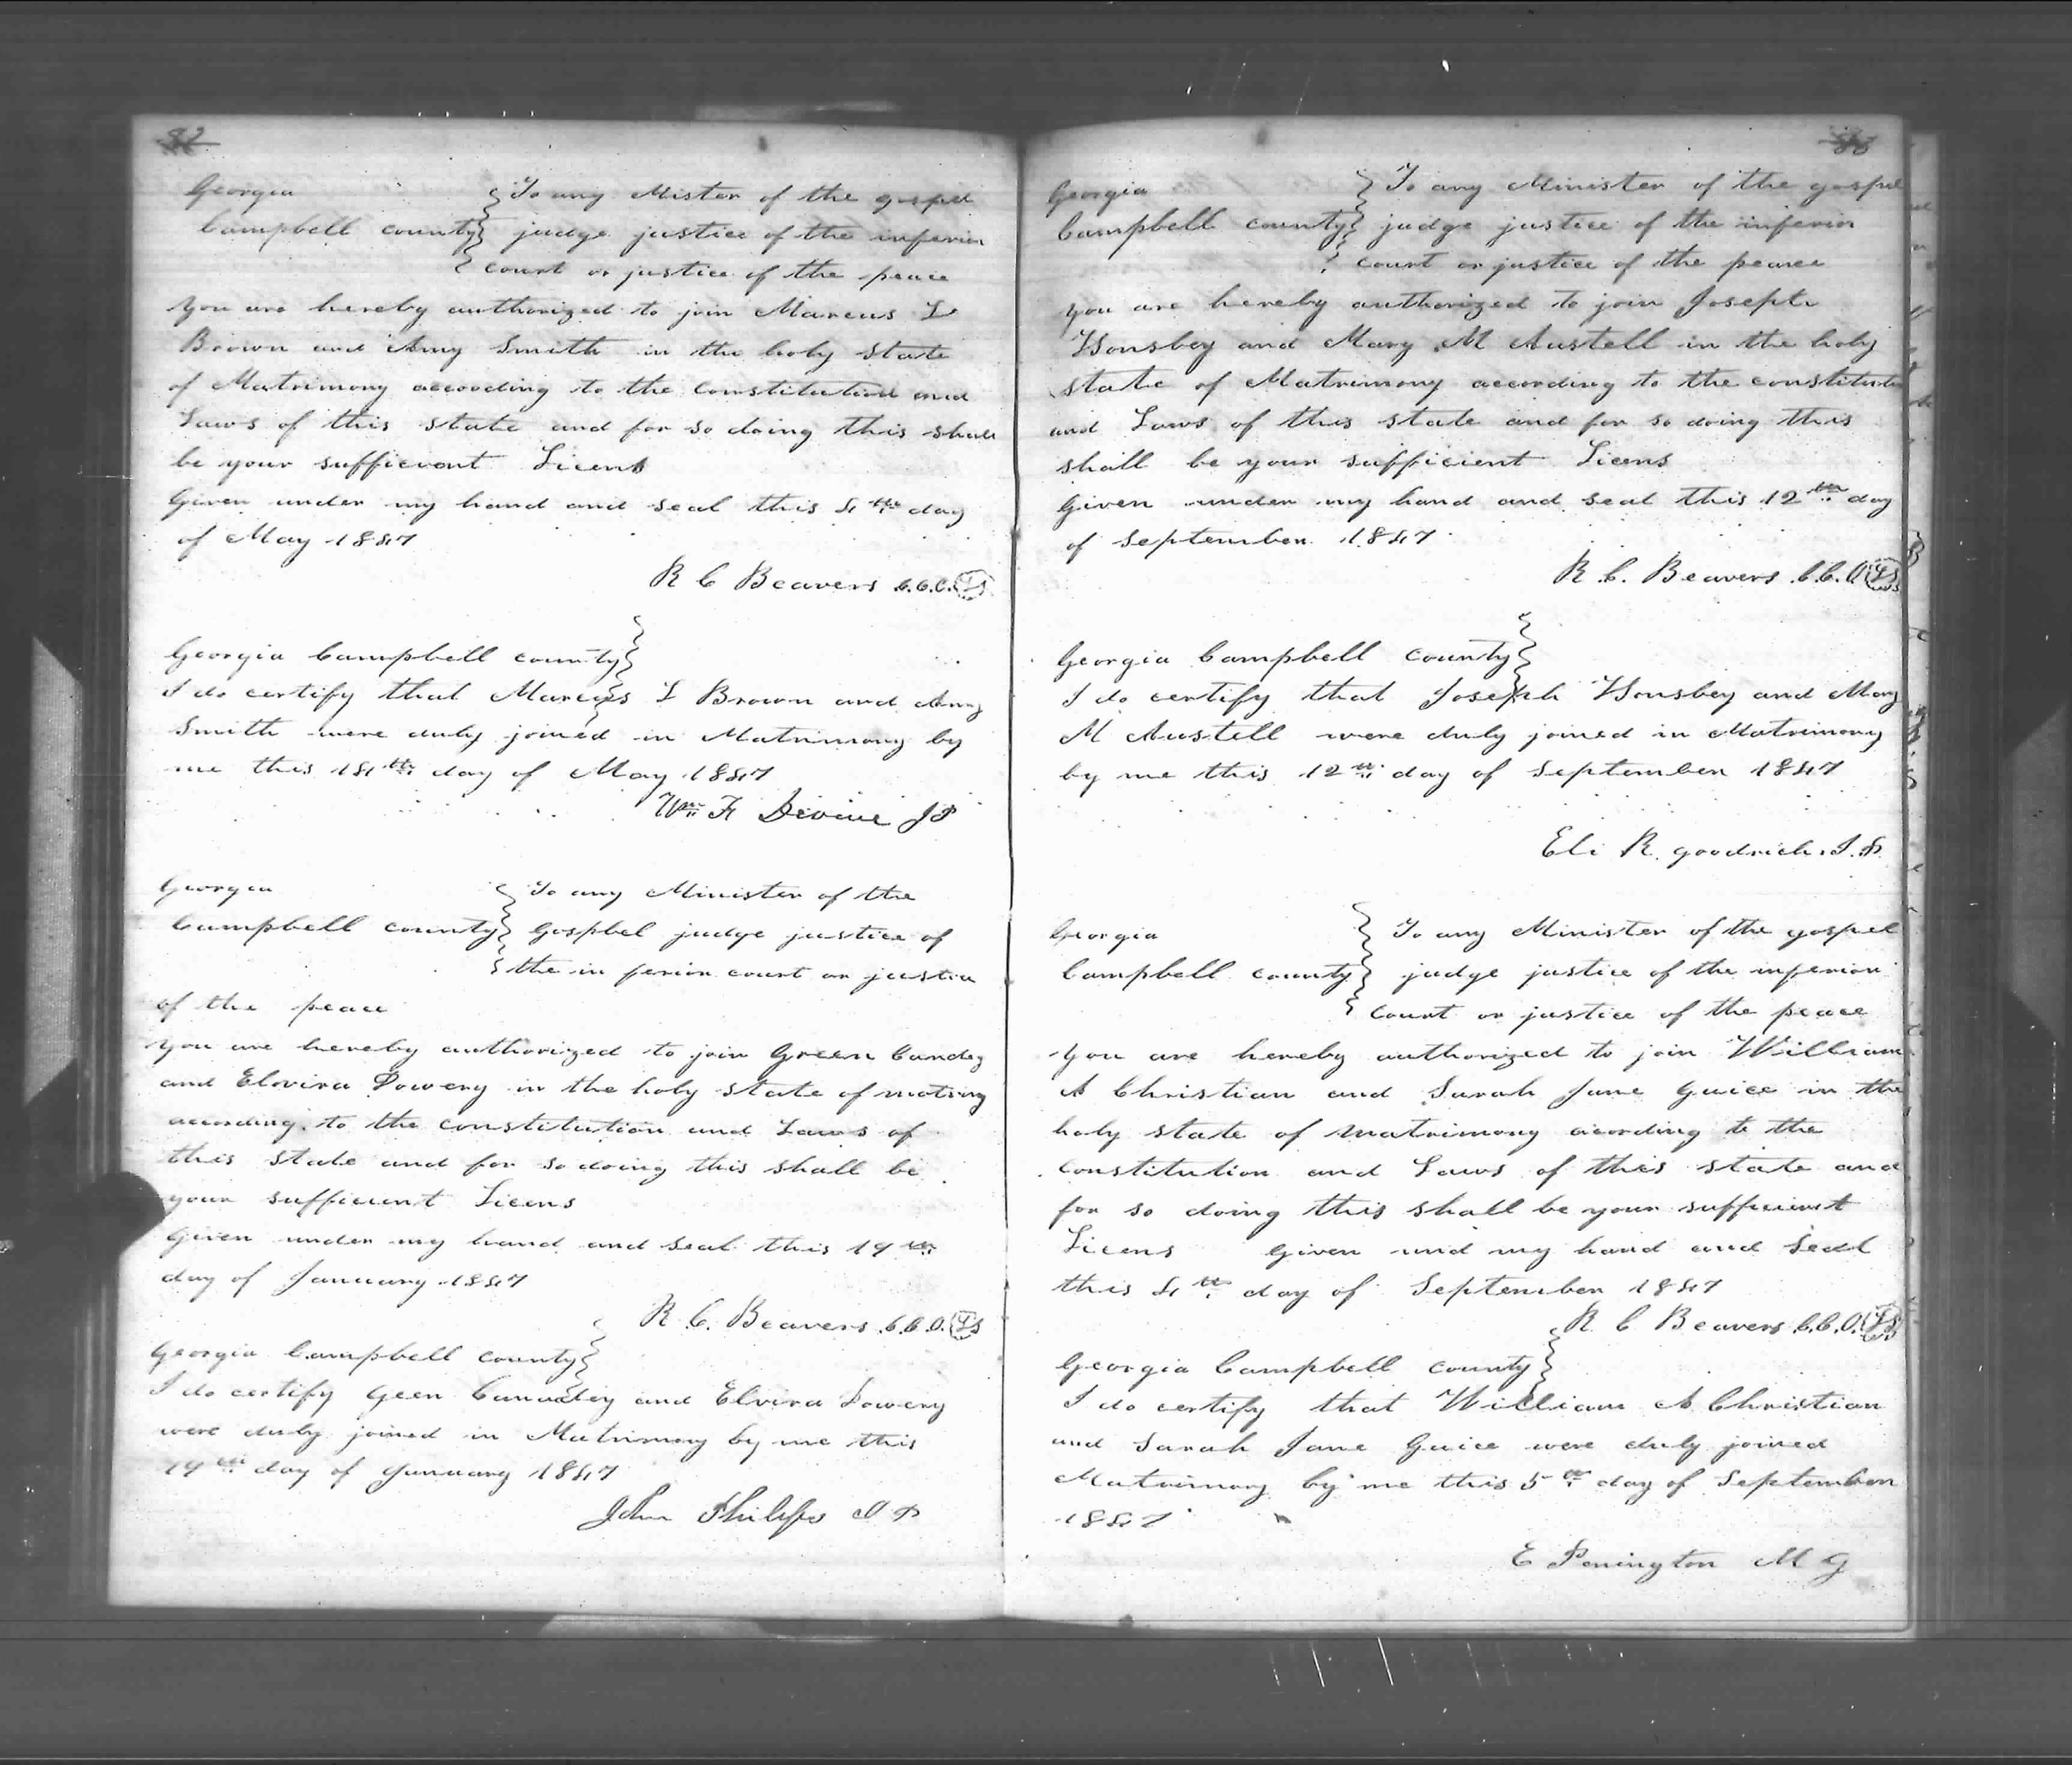 82
Georgia
Campbell county
To any Mister of the gospel
judge justice of the inferior
court or justice of the peace
you are hereby authorized to join Marcus L
Brown and Amy Smith in the holy state
of Matrimony according to the constitution and
Laws of this state and for so doing this shall
be your sufficient Licens
Given under my hand and seal this 4th day
of May 1847
R C Beavers C.C.O. LS
Georgia Campbell county
I do certify that Marcus L Brown and Amy
Smith were duly joined in Matrimony by
me this 14th day of May 1847
Wm F Devine JP
Georgia
Campbell county
To any Minister of the
Gospbel judge justice of
the in ferior court or justice
of the peace
you are hereby authorized to join Green
and Elvira Lowery in the holy state of
according to the constitution and Laws of
this state and for so doing this shall be
your sufficient Licens
Given under my hand and seal this 19th
day of January 1847
R. C. Beavers C.C.O. LS
Georgia Campbell county
I do certify Geen and Elvira Lowery
were duly joined in Matrimony by me this
19th day of January 1847
John Philips J P
Georgia
Campbell county
To any Minister of the gospel
judge justice of the inferior
court or justice of the peace
you are hereby authorized to join Joseph
Honsbey and Mary M Austell in the holy
state of Matrimony according to the
and Laws of this state and for so doing this
shall be your sufficient Licens
Given under my hand and seal this 12th day
of September 1847
R. C. Beavers C.C.O. LS
Georgia Campbell county
I do certify that Joseph Honsbey and Mary
M Austell were duly joined in Matrimony
by me this 12th day of September 1847
Eli R. goodrich J.P.
Georgia
Campbell county
To any Minister of the gospel
judge justice of the inferior
court or justice of the peace
you are hereby authorized to join William
A Christian and Sarah Jane Guice in the
holy state of matrimony acording to the
constitution and Laws of this state and
for so doing this shall be your sufficient
Licens Given und my hand and seal
this 4th day of September 1847
R C Beavers C.C.O. LS
Georgia Campbell county
I do certify that William A Christian
and Sarah Jane Guice were duly joined
Matrimony by me this 5th day of September
1847
E Penington M G